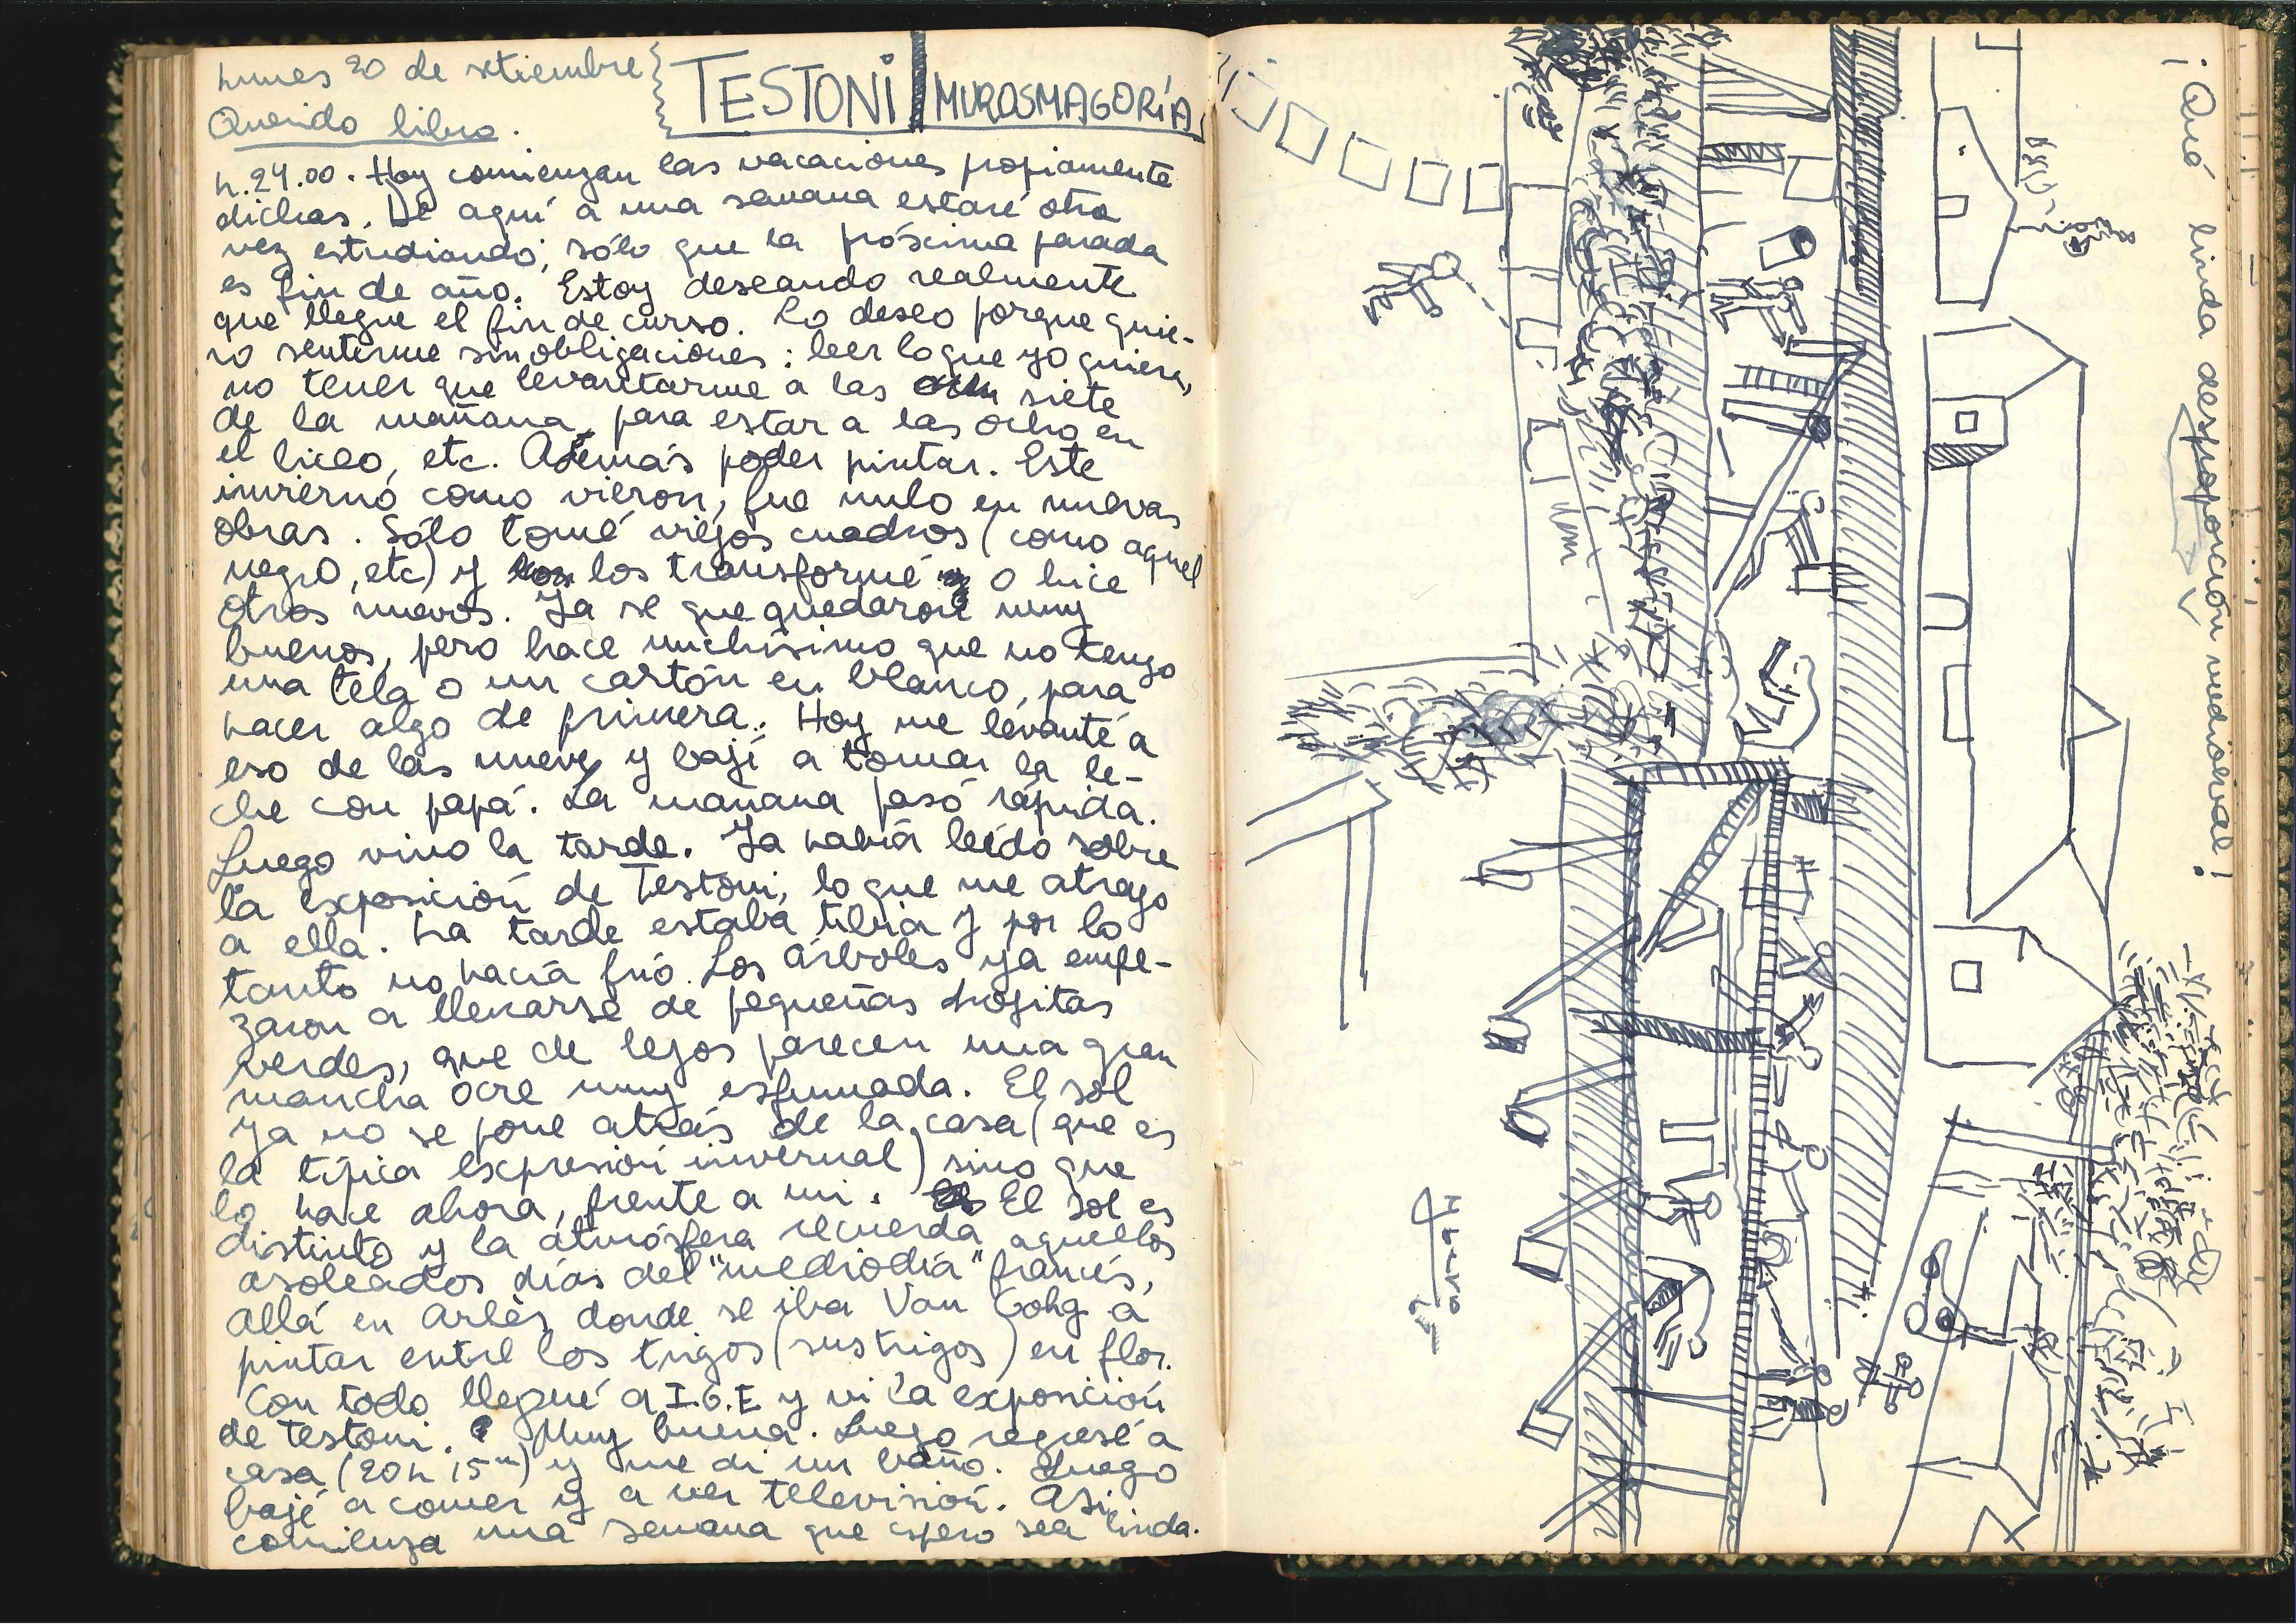 Lunes 20 de setiembre
TESTONI MUROSMAGORÍA
Querido libro.
h.24.00. Hoy comienzan las vacaciones propiamente
dichas. De aquí a una semana estaré otra
vez estudiando; sólo que la próxima parada
es fin de año. Estoy deseando realmente
que llegue el fin de curso. Lo deseo porque quie-
ro sentirme sin obligaciones: leer lo que yo quiera,
no tener que levantarme a las siete
de la mañana, para estar a las ocho en
el liceo, etc. Además poder pintar. Este
invierno como vieron, fue nulo en nuevas
obras. Sólo tomé viejos cuadros (como aquel
negro, etc) y los transformé o hice
otros nuevos. Ya se que quedaron muy
buenos, pero hace muchísimo que no tengo
una tela o un cartón en blanco, para
hacer algo de primera. Hoy me levanté a
eso de las nueve y bajé a tomar la le-
che con papá. La mañana pasó rápida.
Luego vino la tarde. Ya había leído sobre
la exposición de Testoni, lo que me atrayo
a ella. La tarde estaba tibia y por lo
tanto no hacía frío. Los árboles ya empe-
zaron a llenarse de pequeñas hojitas
verdes, que de lejos parecen una gran
mancha ocre muy esfumada. El sol
ya no se pone atrás de la casa (que es
la típica expresión invernal) sino que
lo hace ahora, frente a mi. El sol es
distinto y la atmósfera recuerda aquellos
asoleados días del "mediodía" francés,
allá en Arlés donde se iba Van Gohg a
pintar entre los trigos (sus trigos) en flor.
Con todo llegué a I.G.E y vi la exposición
de testoni. Muy buena. Luego regresé a
casa (20h 15m) y me di un baño. Luego
bajé a comer y a ver televisión. Asi
comienza una semana que espero sea linda.
¡Qué linda desproporción medioeval!